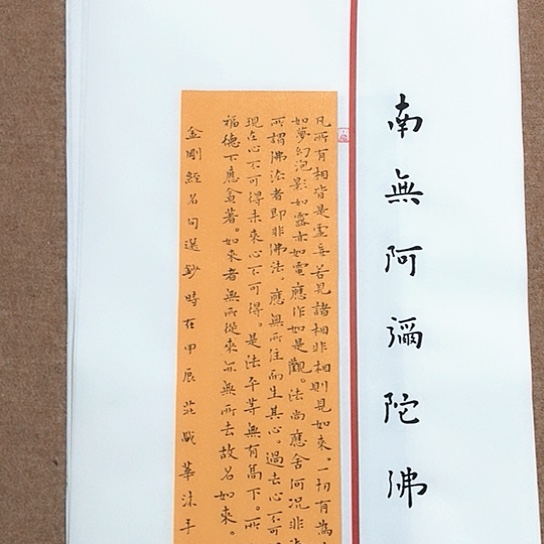 南無阿彌陀佛
凡所有相皆是虛妄若見諸相非相則見如來。一切有為
如夢幻泡影如露亦如電應作如是觀。法尚應舍何況非
所謂佛法者即非佛法。應無所住而生其心。過去心不可
現在心不可得未來心不可得。是法平等無有高下。所
福德不應貪著。如來者無所從來亦無所去故名如來。
金剛經名句選鈔 時在甲辰 華沐手